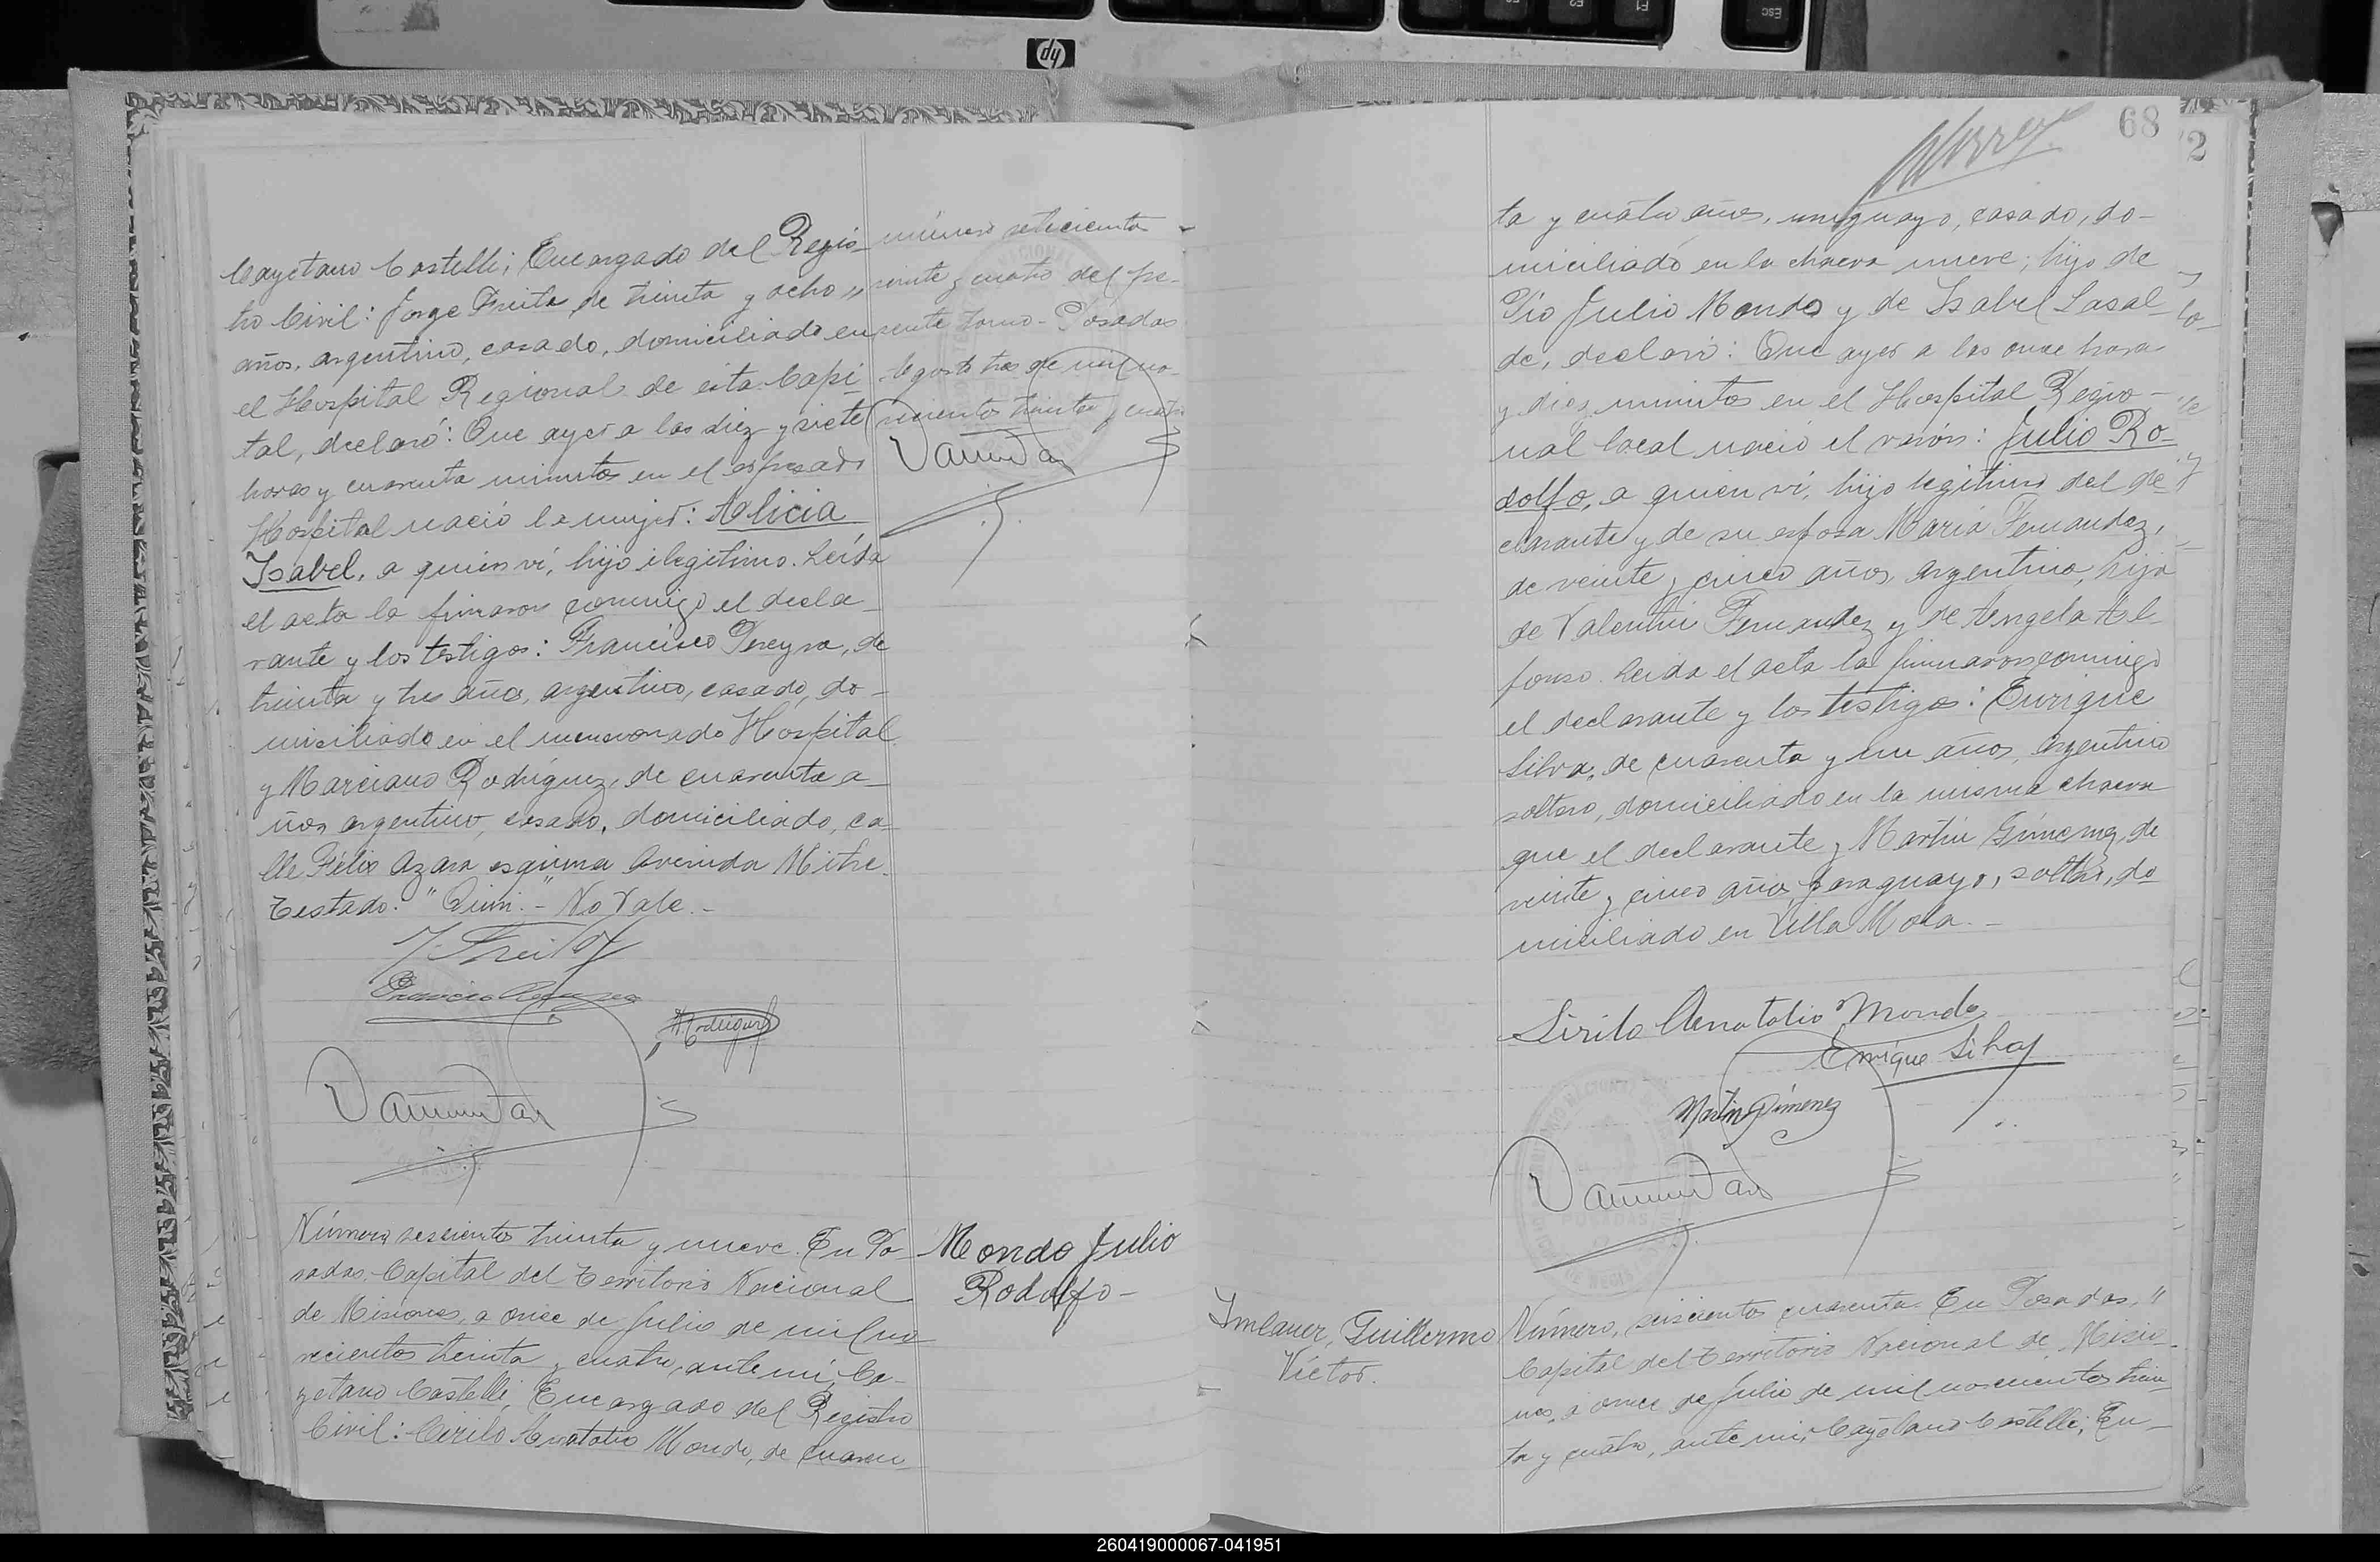 Cayetano Castelli; Encargado del Regis-
tro Civil: Jorge Freita de treinta y ocho "
años, argentino, casado, domiciliado en
el Hospital Regional de esta Capi-
tal, declaró: Que ayer a las diez y siete
horas y cuarenta minutos en el expresado
Hospital nació la mujer: Alicia
Isabel, a quien ví, hijo ilegitimo. Leída
el acta la firmaron conmigo el decla-
rante y los testigos: Francisco Pereyra, de
treinta y tres años, argentino, casado, do-
miciliado en el mensionado Hospital
y Marciano Rodríguez, de cuarenta a-
ños argentino, casado, domiciliado, ca-
lle Félix Azara esquina Avenida Mitre.
Testado: " " - No Vale.-
J. Freita
Francisco Pereyra
M. Rodriguez
número setecientos
veinte y cuatro del pre-
sente tomo - Posadas
Agosto tres de mil no-
vecientos treinta y cuatro
Número seiscientos treinta y nueve. En Po-
sadas, Capital del Territorio Nacional
de Misiones, a once de Julio de mil no-
vecientos treinta y cuatro, ante mí, Ca-
yetano Castelli, Encargado del Registro
Civil: Cirilo Anatolio Mondo, de cuaren-
Mondo Julio
Rodolfo-
68
2
ta y cuatro años, uruguayo, casado, do-
miciliado en la chacra nueve; hijo de
Pío Julio Mondo y de Isabel Lasal-
de, declaró: Que ayer a las once horas
y diez minutos en el Hospital Regio-
nal local nació el varón: Julio Ro-
dolfo, a quien ví, hijo legítimo del de-
clarante y de su esposa María Fernandez,
de veinte y cinco años, argentina, hija
de Valentin Fernandez y de Angela Al-
fonso. Leida el acta la firmaron conmigo
el declarante y los testigos: Enrique
Silva, de cuarenta y un años, argentino
soltero, domiciliado en la misma chacra
que el declarante y Martín Gimenez, de
veinte y cinco años, paraguayo, soltero, do
miciliado en Villa Mola.-
Sirilo Anatolio Mondo
Enrique Silva
Martin Gimenez
Imlauer, Guillermo
Víctor.
Número, seiscientos cuarenta. En Posadas, "
Capital del Territorio Nacional de Misio-
nes, a once de Julio de mil novecientos trein-
ta y cuatro, ante mi, Cayetano Castelli; En-
hp
Esc
F1
F2
260419000067-041951